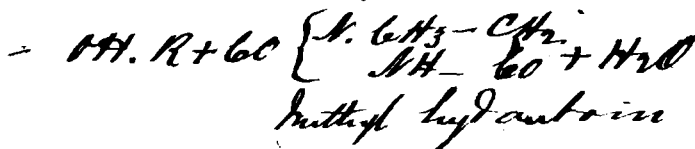 = OH. R + CO { N. CH3 - CH2
NH - CO + H2O
Methyl hydantoin